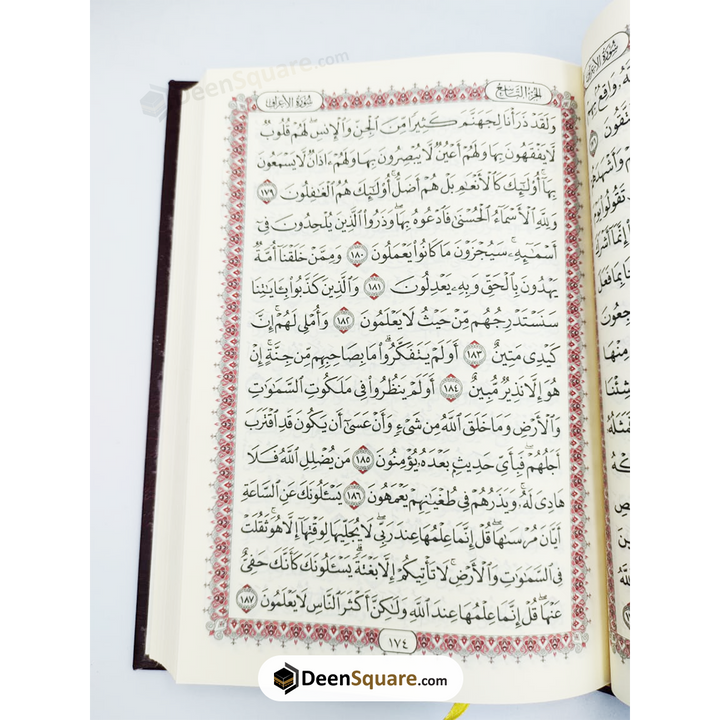 DeenSquare.com
سُورَةُ الأَعْرَافِ
الجُزْءُ التَّاسِعُ
وَلَقَدْ ذَرَأْنَا لِجَهَنَّمَ كَثِيرًا مِّنَ ٱلْجِنِّ وَٱلْإِنسِ ۖ لَهُمْ قُلُوبٌ
لَّا يَفْقَهُونَ بِهَا وَلَهُمْ أَعْيُنٌ لَّا يُبْصِرُونَ بِهَا وَلَهُمْ ءَاذَانٌ لَّا يَسْمَعُونَ
بِهَآ ۚ أُو۟لَٰٓئِكَ كَٱلْأَنْعَٰمِ بَلْ هُمْ أَضَلُّ ۚ أُو۟لَٰٓئِكَ هُمُ ٱلْغَٰفِلُونَ ١٧٩
وَلِلَّهِ ٱلْأَسْمَآءُ ٱلْحُسْنَىٰ فَٱدْعُوهُ بِهَا ۖ وَذَرُوا۟ ٱلَّذِينَ يُلْحِدُونَ فِىٓ
أَسْمَٰٓئِهِۦ ۚ سَيُجْزَوْنَ مَا كَانُوا۟ يَعْمَلُونَ ١٨٠ وَمِمَّنْ خَلَقْنَآ أُمَّةٌ
يَهْدُونَ بِٱلْحَقِّ وَبِهِۦ يَعْدِلُونَ ١٨١ وَٱلَّذِينَ كَذَّبُوا۟ بِـَٔايَٰتِنَا
سَنَسْتَدْرِجُهُم مِّنْ حَيْثُ لَا يَعْلَمُونَ ١٨٢ وَأُمْلِى لَهُمْ ۚ إِنَّ
كَيْدِى مَتِينٌ ١٨٣ أَوَلَمْ يَتَفَكَّرُوا۟ ۗ مَا بِصَاحِبِهِم مِّن جِنَّةٍ ۚ إِنْ
هُوَ إِلَّا نَذِيرٌ مُّبِينٌ ١٨٤ أَوَلَمْ يَنظُرُوا۟ فِى مَلَكُوتِ ٱلسَّمَٰوَٰتِ
وَٱلْأَرْضِ وَمَا خَلَقَ ٱللَّهُ مِن شَىْءٍ وَأَنْ عَسَىٰٓ أَن يَكُونَ قَدِ ٱقْتَرَبَ
أَجَلُهُمْ ۖ فَبِأَىِّ حَدِيثٍۭ بَعْدَهُۥ يُؤْمِنُونَ ١٨٥ مَن يُضْلِلِ ٱللَّهُ فَلَا
هَادِىَ لَهُۥ ۚ وَيَذَرُهُمْ فِى طُغْيَٰنِهِمْ يَعْمَهُونَ ١٨٦ يَسْـَٔلُونَكَ عَنِ ٱلسَّاعَةِ
أَيَّانَ مُرْسَىٰهَا ۖ قُلْ إِنَّمَا عِلْمُهَا عِندَ رَبِّى ۖ لَا يُجَلِّيهَا لِوَقْتِهَآ إِلَّا هُوَ ۚ ثَقُلَتْ
فِى ٱلسَّمَٰوَٰتِ وَٱلْأَرْضِ ۚ لَا تَأْتِيكُمْ إِلَّا بَغْتَةً ۗ يَسْـَٔلُونَكَ كَأَنَّكَ حَفِىٌّ
عَنْهَا ۖ قُلْ إِنَّمَا عِلْمُهَا عِندَ ٱللَّهِ وَلَٰكِنَّ أَكْثَرَ ٱلنَّاسِ لَا يَعْلَمُونَ ١٨٧
١٧٤
سُورَةُ الأَعْرَافِ
DeenSquare.com